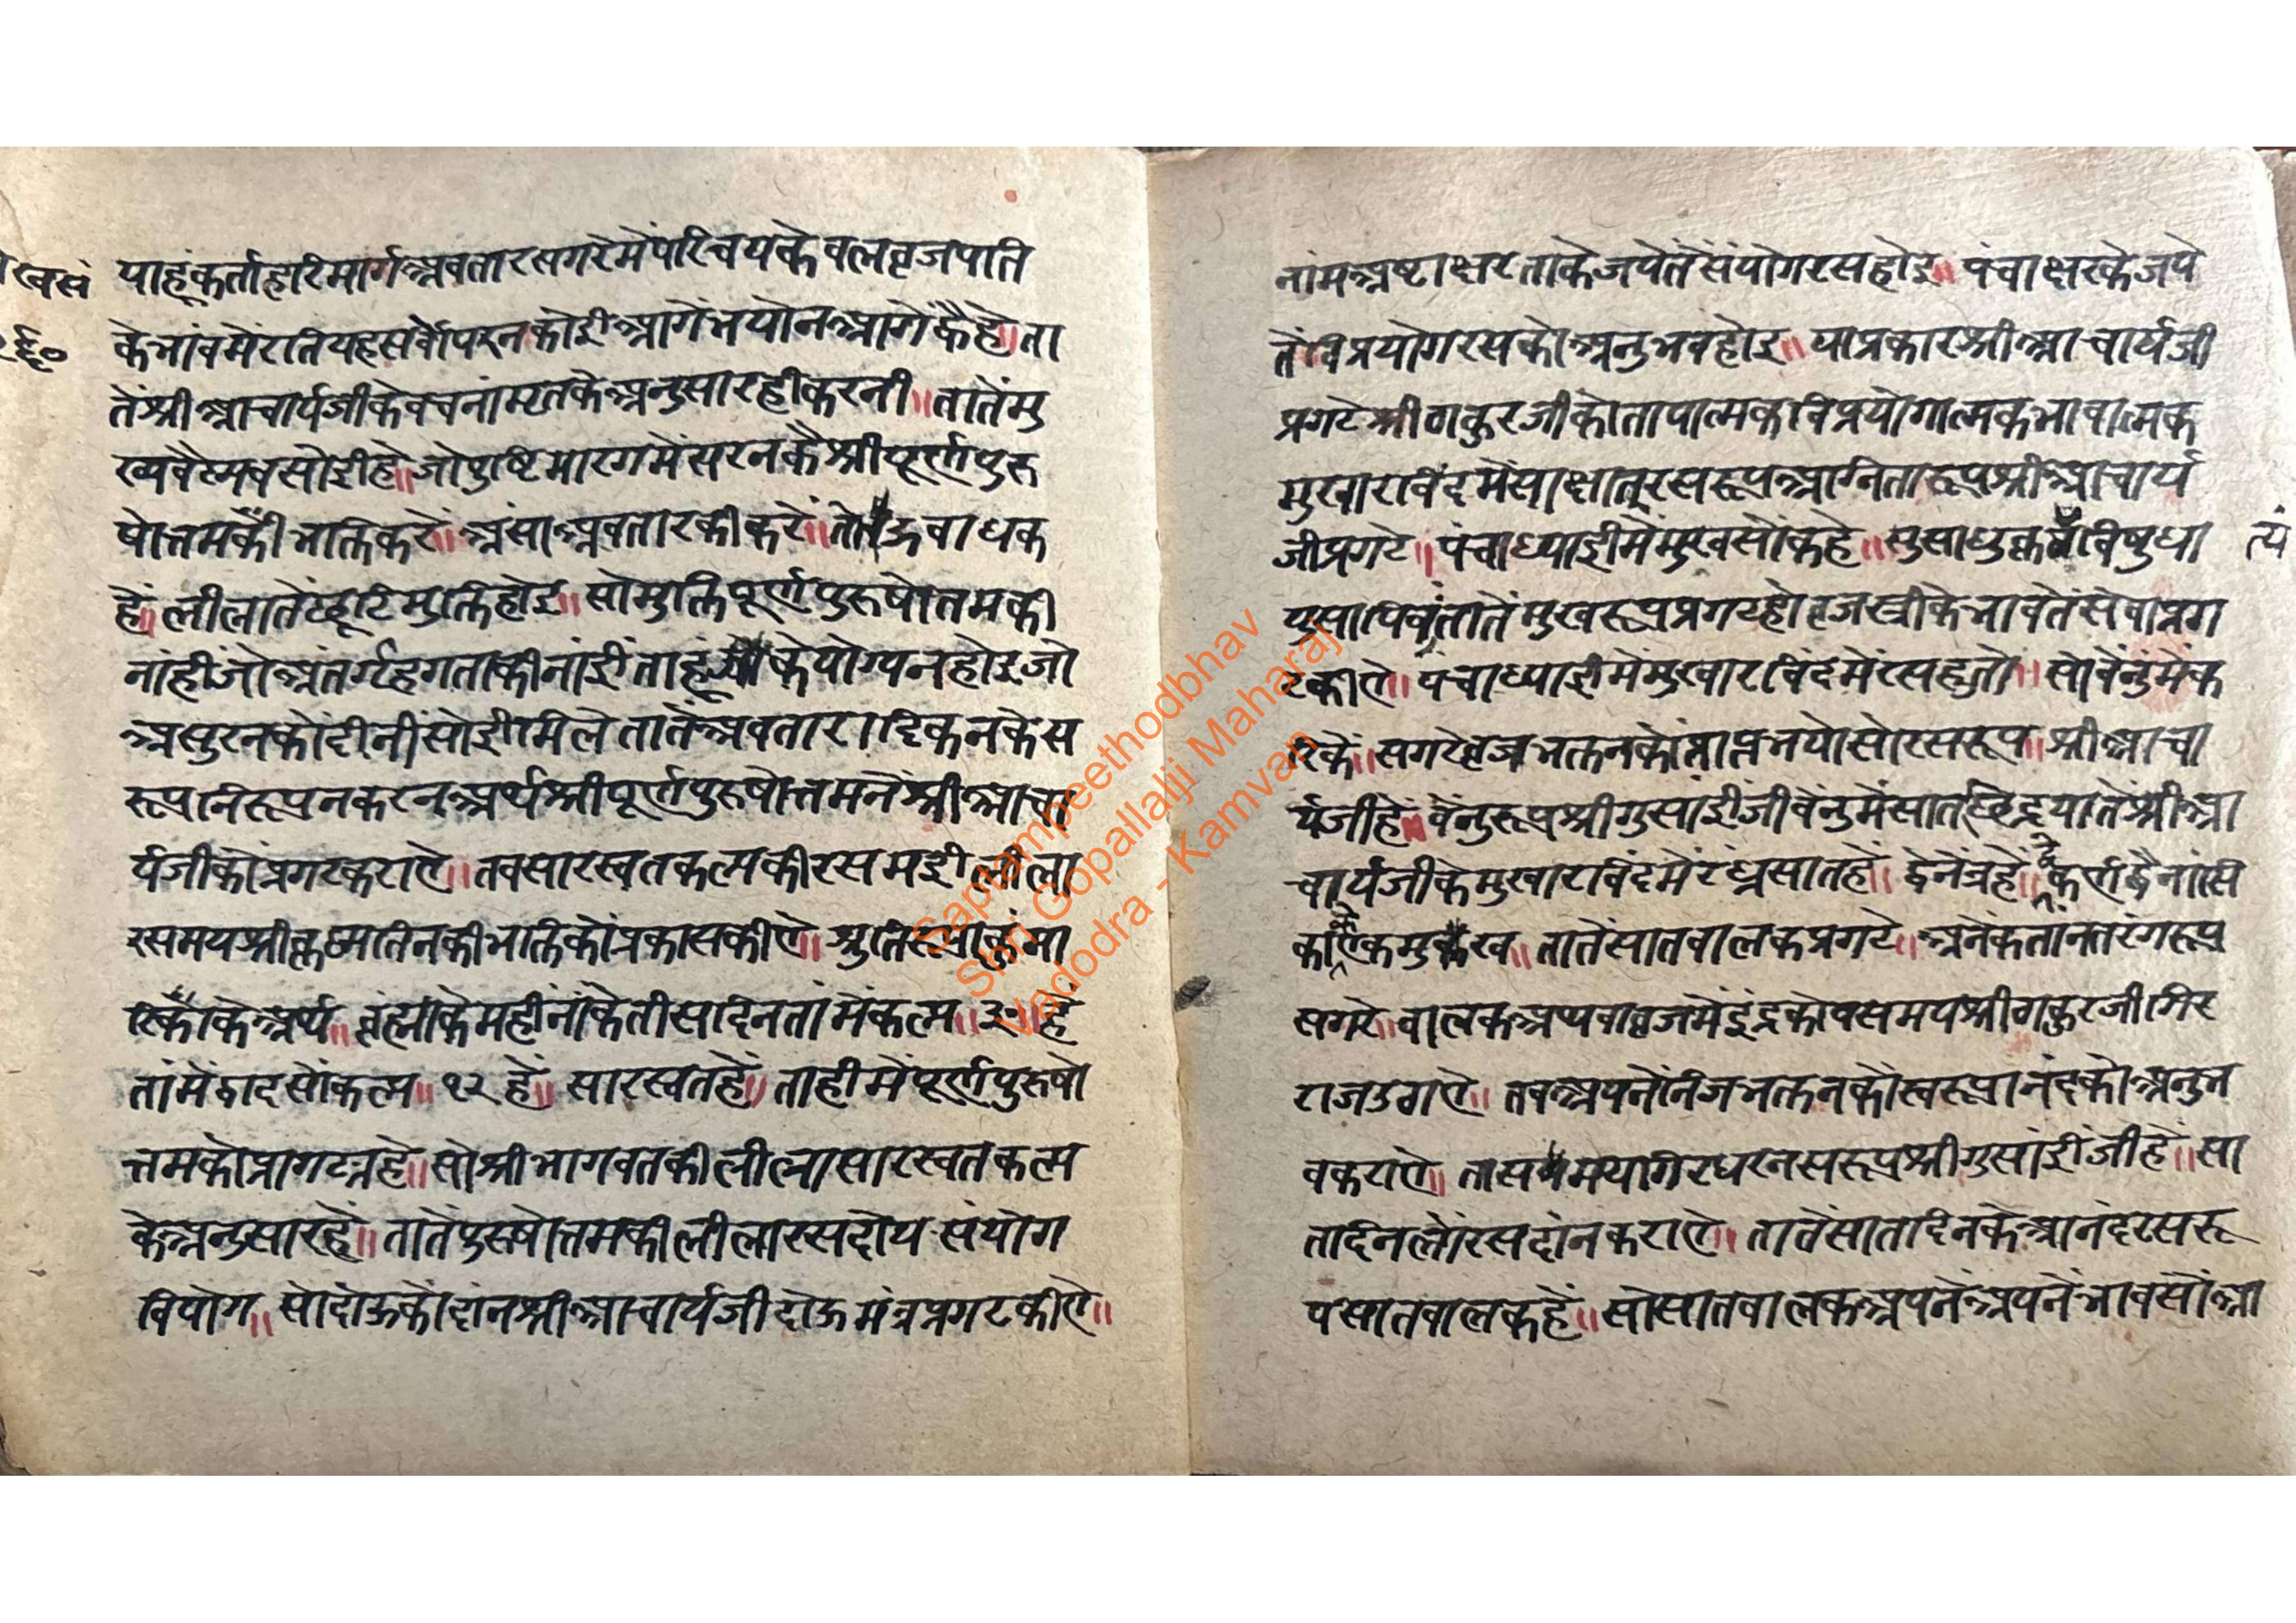 याहूंकर्ताहारिमार्गअवतारसगरेमेंपरिचयकेवलव्रजपति
केभांवमेंरतियहसर्वोपरनकोईआगेंभयोनआगेंकैहे॥ता
तेंश्रीआचार्यजीकेवचनांमृतकेअनुसारहीकरनी॥तातेंमु
ख्यवैस्मवसोईहे॥जोपुष्टिमारगमेंसरनकैश्रीपूर्णपुरु
षोत्तमकीभक्तिकरें॥अंसाअवतारकीकरें॥तोऊबाधक
हें॥लीलातेंछूटिमुक्तिहोइ॥सोमुक्तिपूर्णपुरुषोतमकी
नांहींजोअंतर्गहगताकीनांईंताहूं केयोग्यनहोइजो
असुरनकोंदीनींसोईमिलेतातेंअवतारादिकनकेस
रूपनिरूपनकरनअर्थश्रीपूर्णपुरुषोत्तमनेंश्रीआचा
र्यजीकोंप्रगटकराऐ॥तबसारस्वतकल्पकीरसमईलीला
रसमयश्रीकृष्मतिनकीभक्तिकोंप्रकासकीऐ॥श्रुतिरूपाकुंमा
रिकाकेअर्थ॥ब्रंह्माकेमहींनांकेतीसदिनतांमेंकल्प॥३०॥हे
तांमेंद्वादसोंकल्प॥१२हें॥सारस्वतहें॥ताहीमेंपूर्णपुरुषो
त्तमकोप्रागट्यहे॥सोश्रीभागवतकीलीलासारस्वतकल्प
केअनुसारहें॥तातेंपुरुषोत्तमकीलीलारसदोयसंयोग
वियोग॥सोदोऊकोदांनश्रीआचार्यजीदोऊमंत्रप्रगटकीऐ॥
नांमअष्टाक्षरताकेजपेतेंसंयोगरसहोइ॥पंचाक्षरकेजपे
तेंविप्रयोगरसकोअनुभवहोइ॥याप्रकारश्रीआचार्यजी
प्रगटेश्रीठाकुरजीकोतापात्मकविप्रयोगात्मकभावात्मक
मुखारविंदमेंसाक्षात्रसरूपअग्नितारूपश्रीआचार्य
जीप्रगटे॥पंचाध्याईमेंमुखसोंकहे॥सुसाधुकृत्यंविबुधा
युसापिवांतातेंमुखरूपप्रगटहोव्रजस्त्रीकेभावतेंसेवाप्रग
टकीऐ॥पंचाध्याईमेंमुखारविंदमेंरसहुतो॥सोवेंनुंमेंक
रिकें॥सगरेव्रजभक्तनकोंप्राप्तभयोसोरसरूप॥श्रीआचा
र्यजीहें॥वेंनुरूपश्रीगुसांईंजीवेंनुमेंसातछिद्रयातेंश्रीआ
चार्यजीकेमुखारविंदमेंरंध्रसातहें॥द्वेनेंत्रहें॥२कर्णद्वैनासि
काऐकमुख॥तातेंसातबालकप्रगटे॥अनेंकतांनतरंगरूप
सगरे॥बालकअथवाव्रजमेंइंद्रकोपसमयश्रीठाकुरजीगिर
राजउठाऐ॥तबअपनेंनिजभक्तनकोंस्वरूपानंदकोअनुभ
वकराऐ॥तासमयागिरधरनसरूपश्रीगुसांईंजीहें॥सा
तदिनलोंरसदांनकराऐ॥तातेंसातदिनकेआनंदरसरू
पसातबालकहें॥सोसातबालकअपनेंअपनेंभावसोंआ
त्यं
Saptampeethodbhav
Shri Gopallalji Maharaj
Vadodra - Kamvan